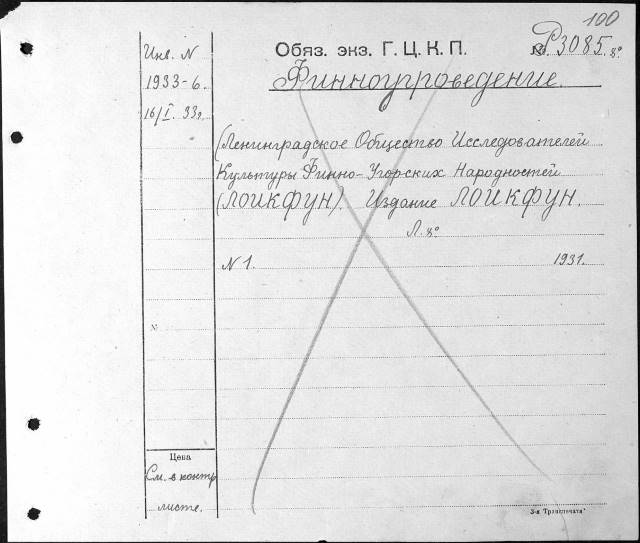 100
Инв. N Обяз. экз. Г. Ц. К. П. № Р3085. 8°
1933-6. Финноугроведение.
16/I. 33г.
(Ленинградское Общество Исследователей
Культуры Финно-Угорских Народностей
(ЛОИКФУН). Издание ЛОИКФУН.
Л. 8°
N 1. 1931.
№
Цена
См. в контр
листе.
3-я "Транспечати"